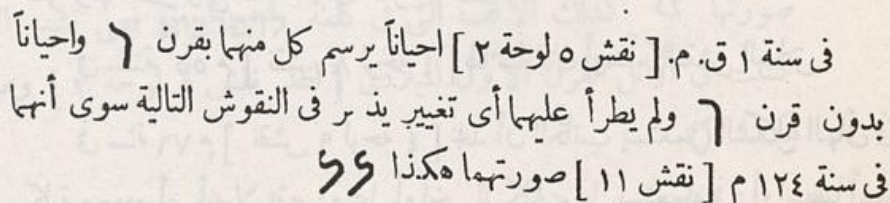 فى سنة ١ ق. م. [ نقش ٥ لوحة ٢ ] احياناً يرسم كل منهما بقرن واحياناً
بدون قرن ولم يطرأ عليهما أى تغيير يذ ر فى النقوش التالية سوى أنهما
فى سنة ١٢٤ م [ نقش ١١ ] صورتهما هكذا